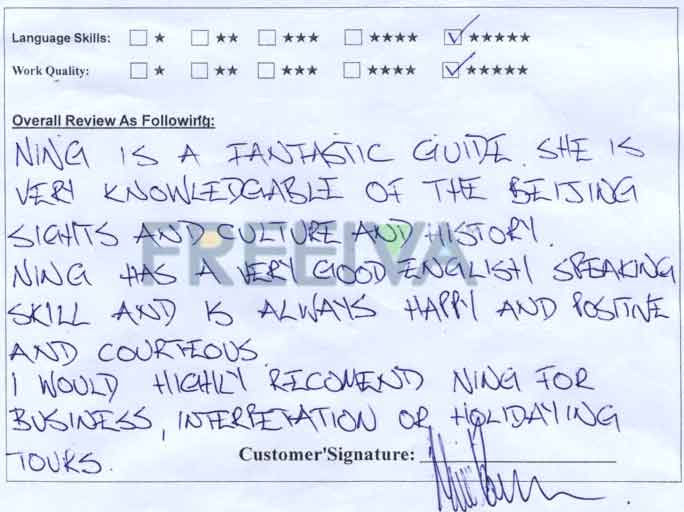 Language Skills: ☐ ★ ☐ ★★ ☐ ★★★ ☐ ★★★★ ☑ ★★★★★
Work Quality: ☐ ★ ☐ ★★ ☐ ★★★ ☐ ★★★★ ☑ ★★★★★
Overall Review As Following:
NING IS A FANTASTIC GUIDE. SHE IS
VERY KNOWLEDGABLE OF THE BEIJING
SIGHTS AND CULTURE AND HISTORY.
FREEIVA
NING HAS A VERY GOOD ENGLISH SPEAKING
SKILL AND IS ALWAYS HAPPY AND POSITIVE
AND COURTEOUS
I WOULD HIGHLY RECOMEND NING FOR
BUSINESS, INTERPETATION OR HOLIDAYING
TOURS.
Customer'Signature: